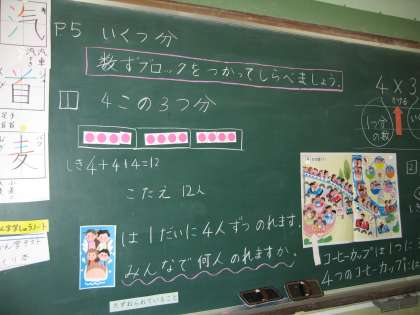 汽
汽車
首
麦
P5 いくつ分
数ずブロックをつかってしらべましょう。
1 4この3つ分
しき4+4+4=12
こたえ 12人
は1だいに4人ずつのれます。
みんなで何人のれますか。
たずねられていること
4×3
かける
1つ分の数
2
コーヒーカップは1つに
4つのコーヒーカップには